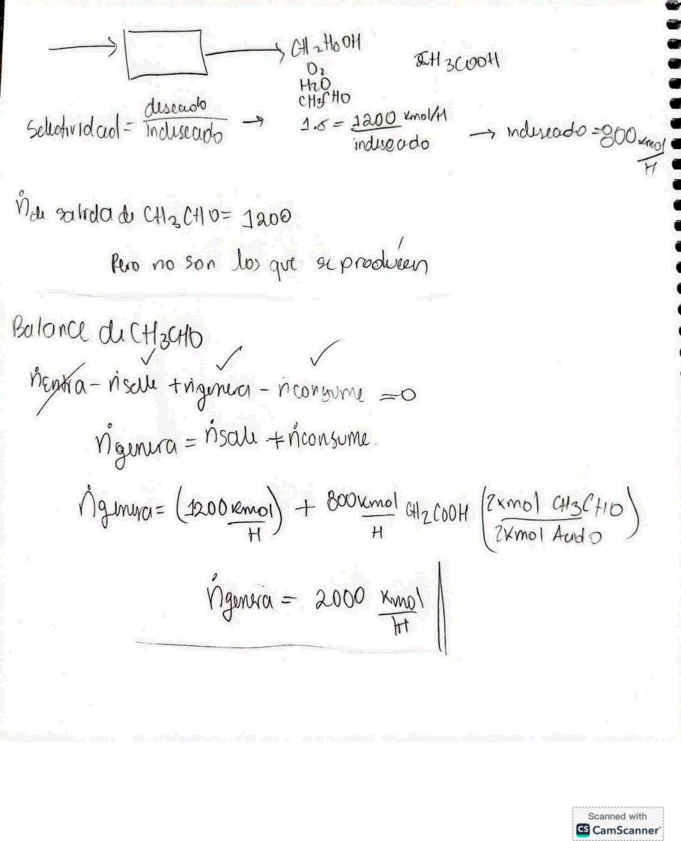 CH2H0OH
O2
H2O
CH3CHO
CH3COOH
Selectividad = deseado / indeseado → 1.5 = 1200 kmol/H / indeseado → indeseado = 800 kmol / H
ṅ de salida de CH3CHO = 1200
Pero no son los que se producen
Balance de CH3CHO
ṅentra - ṅsale + ṅgenera - ṅconsume = 0
ṅgenera = ṅsale + ṅconsume.
ṅgenera = (1200 kmol / H) + 800 kmol / H CH2COOH (2kmol CH3CHO / 2kmol Acido)
ṅgenera = 2000 kmol / H
Scanned with
CS CamScanner